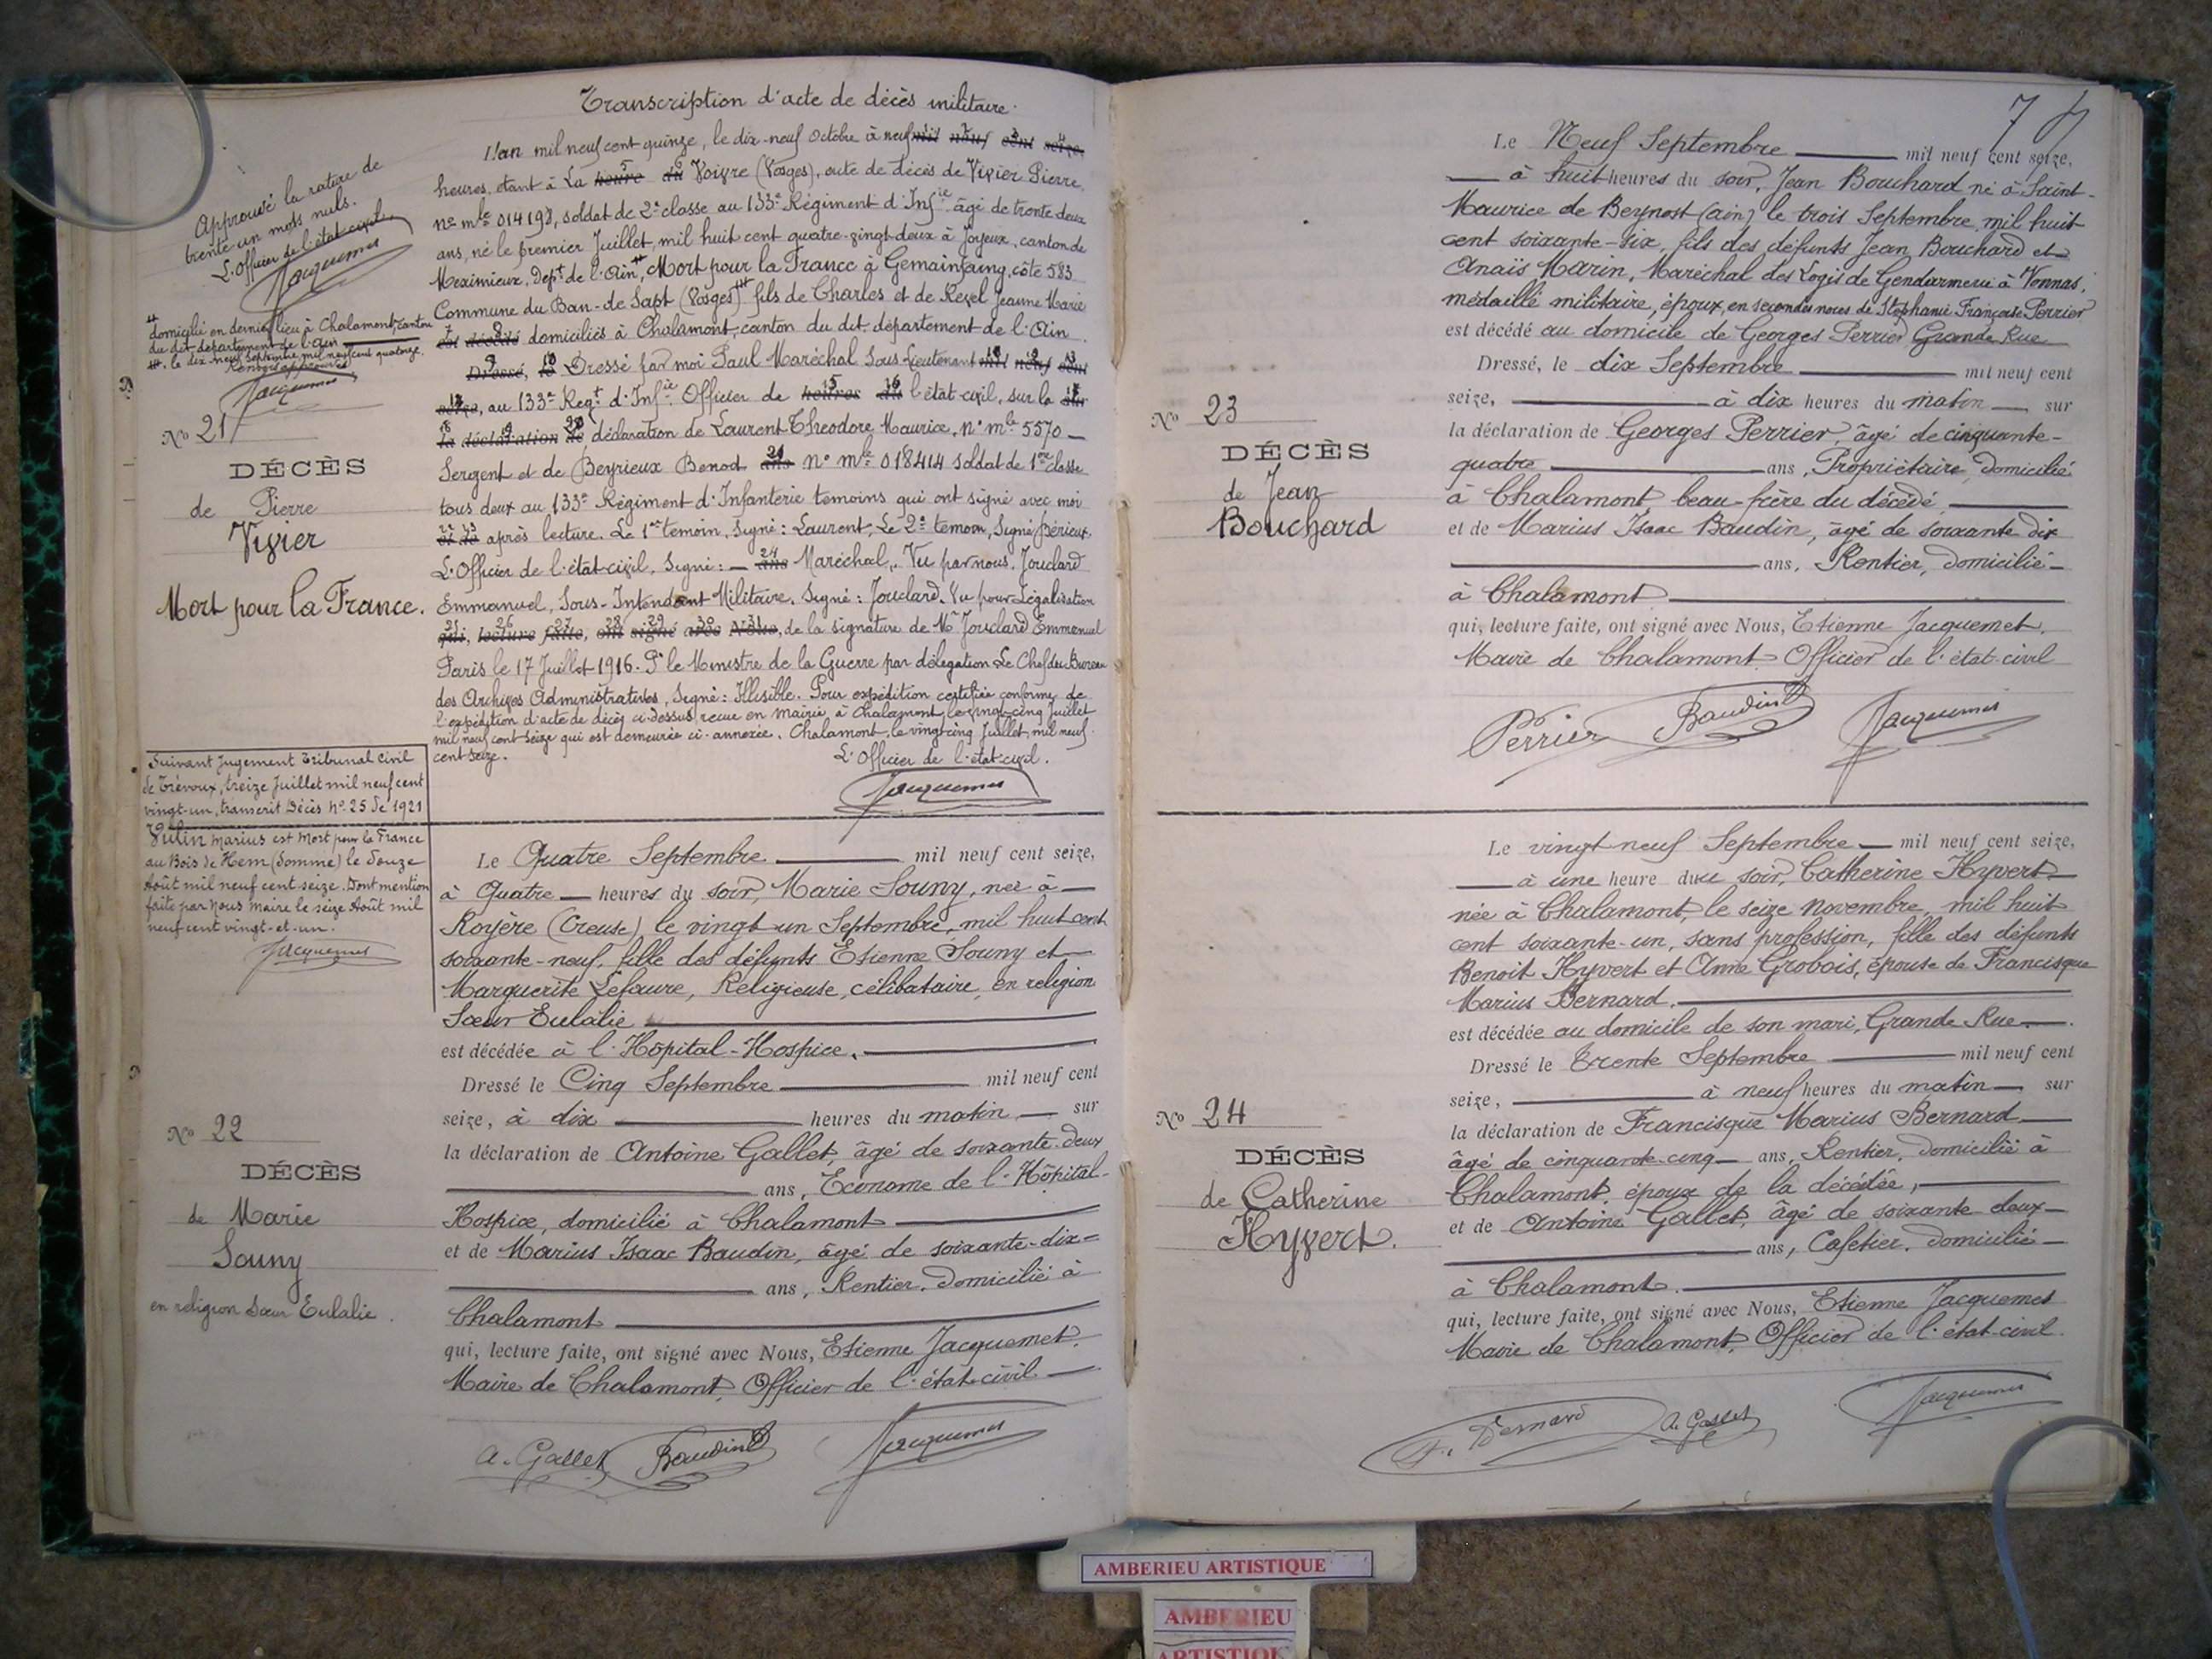 Transcription d'acte de décès militaire.
L'an mil neuf cent quinze, le dix-neuf Octobre à neuf mil neuf cent seize,
heures, étant à La heure du Voivre (Vosges), acte de décès de Vivier Pierre,
no mle 014198, soldat de 2e classe au 133e Régiment d'Infie âgé de trente deux
ans, né le premier Juillet, mil huit cent quatre-vingt deux à Joyeux, canton de
Meximieux, Dépt de l'Ain, Mort pour la France à Gemainfaing, côte 583
Commune du Ban-de Sapt (Vosges) fils de Charles et de Revel Jeanne Marie
est décédé domiciliés à Chalamont, canton du dit département de l'Ain.
Dressé, le Dressé par moi Paul Maréchal Sous-Lieutenant mil neuf cent
seize, au 133e Regt d'Infie Officier de heures du l'état-civil, sur la sur
la déclaration de déclaration de Laurent Théodore Maurice, No mle 5570
Sergent et de Beyrieux Benod ans No mle 018414 soldat de 1ère classe
tous deux au 133e Régiment d'Infanterie témoins qui ont signé avec moi
et de après lecture. Le 1er témoin, Signé : Laurent, Le 2e témoin, Signé Bérieux.
L'Officier de l'état-civil, Signé : ans Maréchal. Vu par nous. Jouclard
Emmanuel, Sous-Intendant Militaire. Signé : Jouclard. Vu pour Légalisation
qui, lecture faite, ont signé avec Nous, de la signature de Mr Jouclard Emmanuel
Paris le 17 Juillet 1916. Pr le Ministre de la Guerre par délégation Le Chef du Bureau
des Archives Administratives, Signé : Illisible. Pour expédition certifiée conforme de
l'expédition d'acte de décès ci-dessus reçue en mairie à Chalamont le vingt-cinq Juillet
mil neuf cent seize qui est demeurée ci-annexée. Chalamont, le vingt cinq Juillet, mil neuf
cent seize.
L'Officier de l'état-civil.
Jacquemet
Approuvé la rature de
trente-un mots nuls.
L'Officier de l'état civil
Jacquemet
domicilié en dernier lieu à Chalamont, canton
du dit département de l'Ain
le dix-neuf Septembre mil neuf cent quatorze.
Renvois approuvés
Jacquemet
No 21
DÉCÈS
de Pierre
Vivier
Mort pour la France.
Suivant Jugement Tribunal Civil
de Trévoux, treize Juillet mil neuf cent
vingt-un, transcrit Décès No 25 de 1921
Marius est Mort pour la France
au Bois de Hem (Somme) le douze
Août mil neuf cent seize. Dont mention
faite par Nous Maire le seize Août mil
neuf cent vingt-et-un.
Jacquemet
No 22
DÉCÈS
de Marie
Souny
en religion Sœur Eulalie.
Le Quatre Septembre mil neuf cent seize,
à Quatre heures du soir, Marie Souny, née à
Royère (Creuse), le vingt-un Septembre, mil huit cent
soixante-neuf, fille des défunts Etienne Souny et
Marguerite Lefaure, Religieuse, célibataire, en religion
Sœur Eulalie
est décédée à l'Hôpital-Hospice.
Dressé le Cinq Septembre mil neuf cent
seize, à dix heures du matin sur
la déclaration de Antoine Gallet, âgé de soixante-deux
ans, Econome de l'Hôpital-
Hospice, domicilié à Chalamont
et de Marius Isaac Baudin, âgé de soixante-dix
ans, Rentier, Domicilié à
Chalamont
qui, lecture faite, ont signé avec Nous, Etienne Jacquemet,
Maire de Chalamont, Officier de l'état-civil
A. Gallet Baudin Jacquemet
7
No 23
DÉCÈS
de Jean
Bouchard
Le Neuf Septembre mil neuf cent seize,
à huit heures du soir, Jean Bouchard né à Saint-
Maurice de Beynost (Ain) le trois Septembre, mil huit
cent soixante-six, fils des défunts Jean Bouchard et
Anaïs Marin, Maréchal des Logis de Gendarmerie à Vonnas,
médaillé militaire, époux, en secondes noces de Stéphanie Françoise Perrier
est décédé au domicile de Georges Perrier Grande Rue
Dressé, le dix Septembre mil neuf cent
seize, à dix heures du matin sur
la déclaration de Georges Perrier, âgé de cinquante-
quatre ans, Propriétaire, domicilié
à Chalamont, beau-frère du décédé,
et de Marius Isaac Baudin, âgé de soixante dix
ans, Rentier, domicilié
à Chalamont
qui, lecture faite, ont signé avec Nous, Etienne Jacquemet,
Maire de Chalamont, Officier de l'état-civil
Perrier Baudin Jacquemet
No 24
DÉCÈS
de Catherine
Hyvert.
Le vingt neuf Septembre mil neuf cent seize,
à une heure du soir, Catherine Hyvert
née à Chalamont, le seize Novembre, mil huit
cent soixante-un, sans profession, fille des défunts
Benoit Hyvert et Anne Grobois, épouse de Francisque
Marius Bernard.
est décédée au domicile de son mari, Grande Rue.
Dressé le Trente Septembre mil neuf cent
seize, à neuf heures du matin sur
la déclaration de Francisque Marius Bernard
âgé de cinquante-cinq ans, Rentier, domicilié à
Chalamont, époux de la décédée,
et de Antoine Gallet, âgé de soixante deux
ans, Cafetier, domicilié
à Chalamont.
qui, lecture faite, ont signé avec Nous, Etienne Jacquemet
Maire de Chalamont, Officier de l'état-civil.
F. Bernard A. Gallet Jacquemet
AMBERIEU ARTISTIQUE
AMBERIEU
ARTISTIQUE